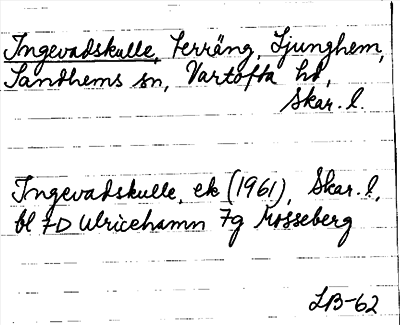 Ingevadskulle, terräng, Ljunghem,
Sandhems sn, Vartofta hd,
Skar. l.
Ingevadskulle, ek (1961), Skar. l,
bl 7D Ulricehamn 7g Mosseberg
LB-62